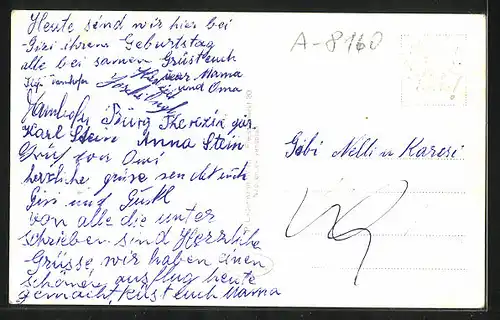 Heute send wir hier bei
Gisi ihrem Geburtstag
alle bei samen Grüst euch
eure Mama
und Oma
Bürg Therezia
Karl Stein Anna Stein
Gruß von Omi
herzliche grüse sendet euch
Gisi und Gustl
von alle die unter
schrieben sind Herzliche
Grüsse, wir haben einen
schönen ausflug heute
gemacht, Küst euch Mama
A-8160
Gabi Nelli u Karesi